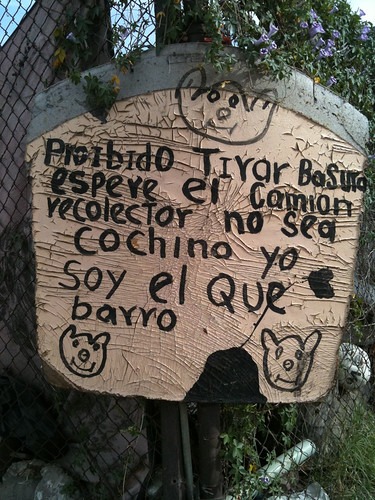 Proibido Tirar Basura
espere el Camion
recolector no sea
Cochino yo
Soy el Que
barro